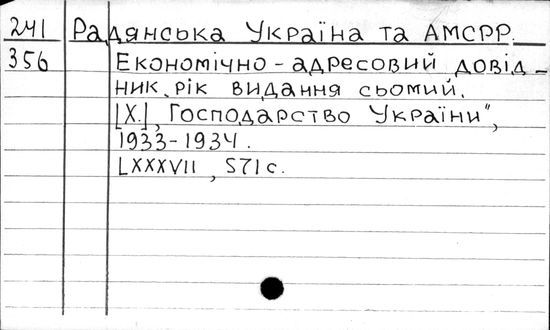 241 Радянська Україна та АМСРР.
356 Економічно-адресовий довід-
ник, рік видання сьомий.
[Х.], "Господарство України",
1933-1934.
LXXXVII, 571 с.